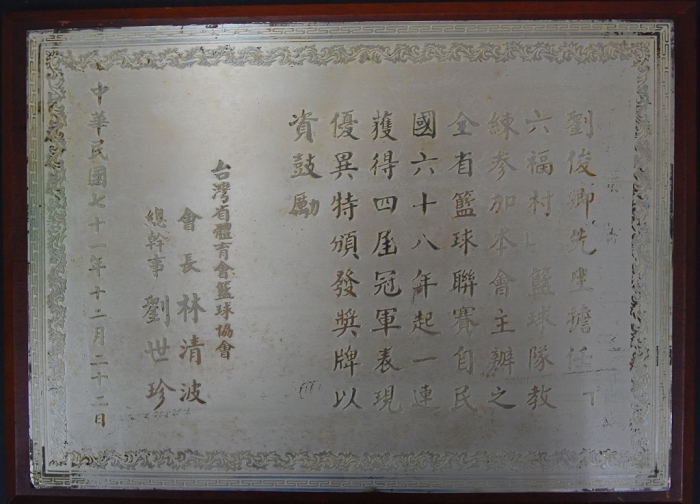 劉俊卿先生擔任
六福村籃球隊教
練參加本會主辦之
全省籃球聯賽自民
國六十八年起一連
獲得四屆冠軍表現
優異特頒發獎牌以
資鼓勵
台灣省體育會籃球協會
會長 林清波
總幹事 劉世珍
中華民國七十一年十二月二十二日